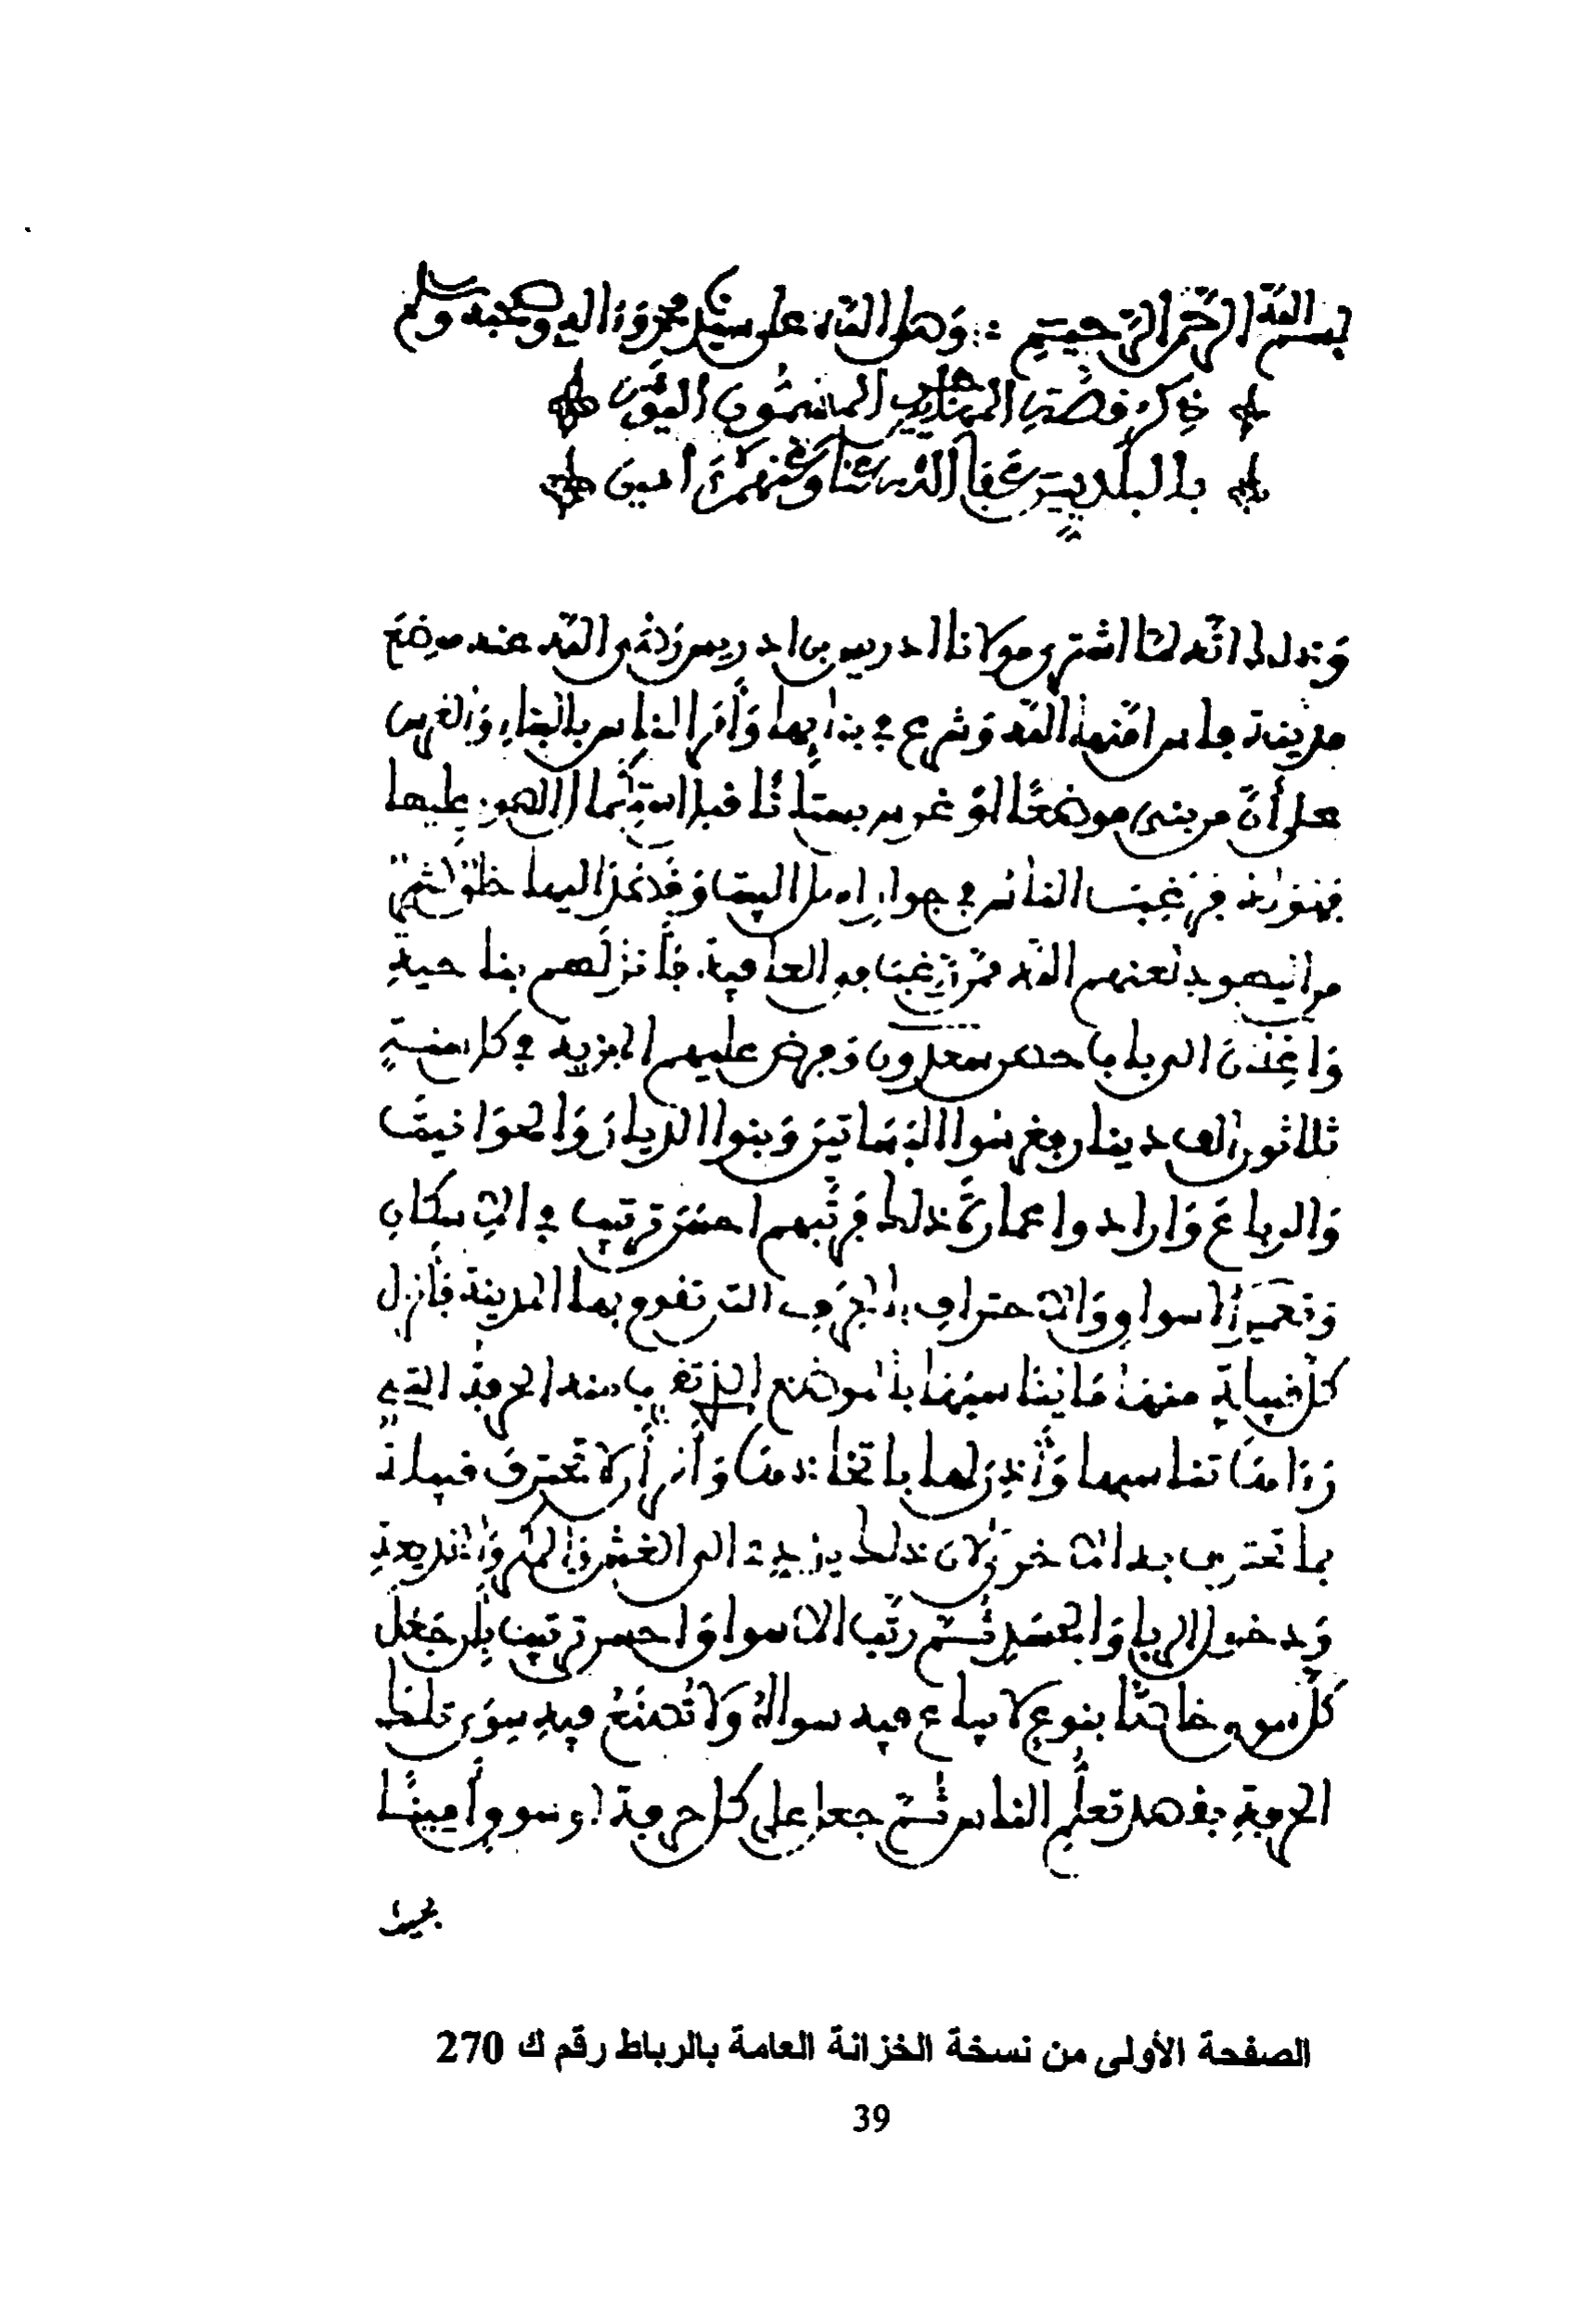 بسم الله الرحمن الرحيم وصلى الله على سيدنا محمد وءاله وصحبه وسلم
ذكر قصة المهاجرين المسمون اليوم
بالبلديين عفا الله عنا وعنهم ءامين
وذلك انه لما اشترى مولانا ادريس بن ادريس رضي الله عنه موضع
مدينة فاس امنها الله وشرع في بنايها وأمر الناس بالبناء والغرس
على أن من بنى موضعا او غرس بستانا قبل استكمال السور عليها
فهو له فرغبت الناس في جواره اهل البيت وقد نزل اليها خلق كثير
من اليهود لعنهم الله ممن رغب في العافية. فأنزلهم بناحية
واغذن الى باب حصن سعدون وفرض عليهم الجزية في كل سنة
ثلاثون الف دينار فغرسوا البساتين وبنوا الديار والحوانيت
والرباع وارادوا عمارة ذلك فرتبهم احسن ترتيب في الاسكان
وتعمير الاسواق والاحتراف بالحرف التي تقوم بها المدينة فأنزل
كل قبيلة منها ما يناسبها بالموضع الذي تقرب منه الحرفة التي
رءاها تناسبها وأذن لها باتخاذها وأمر أن لا تحترف قبيلة
بما تحترف به الاخرى لان ذلك يؤدي الى الغش والمكر والخديعة
ودخول الربا والحسد ثم رتب الاسواق احسن ترتيب بأن جعل
كل سوق خاصا بنوع لا يباع فيه سواه ولا تصنع فيه سوى تلك
الحرفة بقصد تعلم الناس ثم جعل على كل حرفة او سوق أمينا
الصفحة الأولى من نسخة الخزانة العامة بالرباط رقم ك 270
39